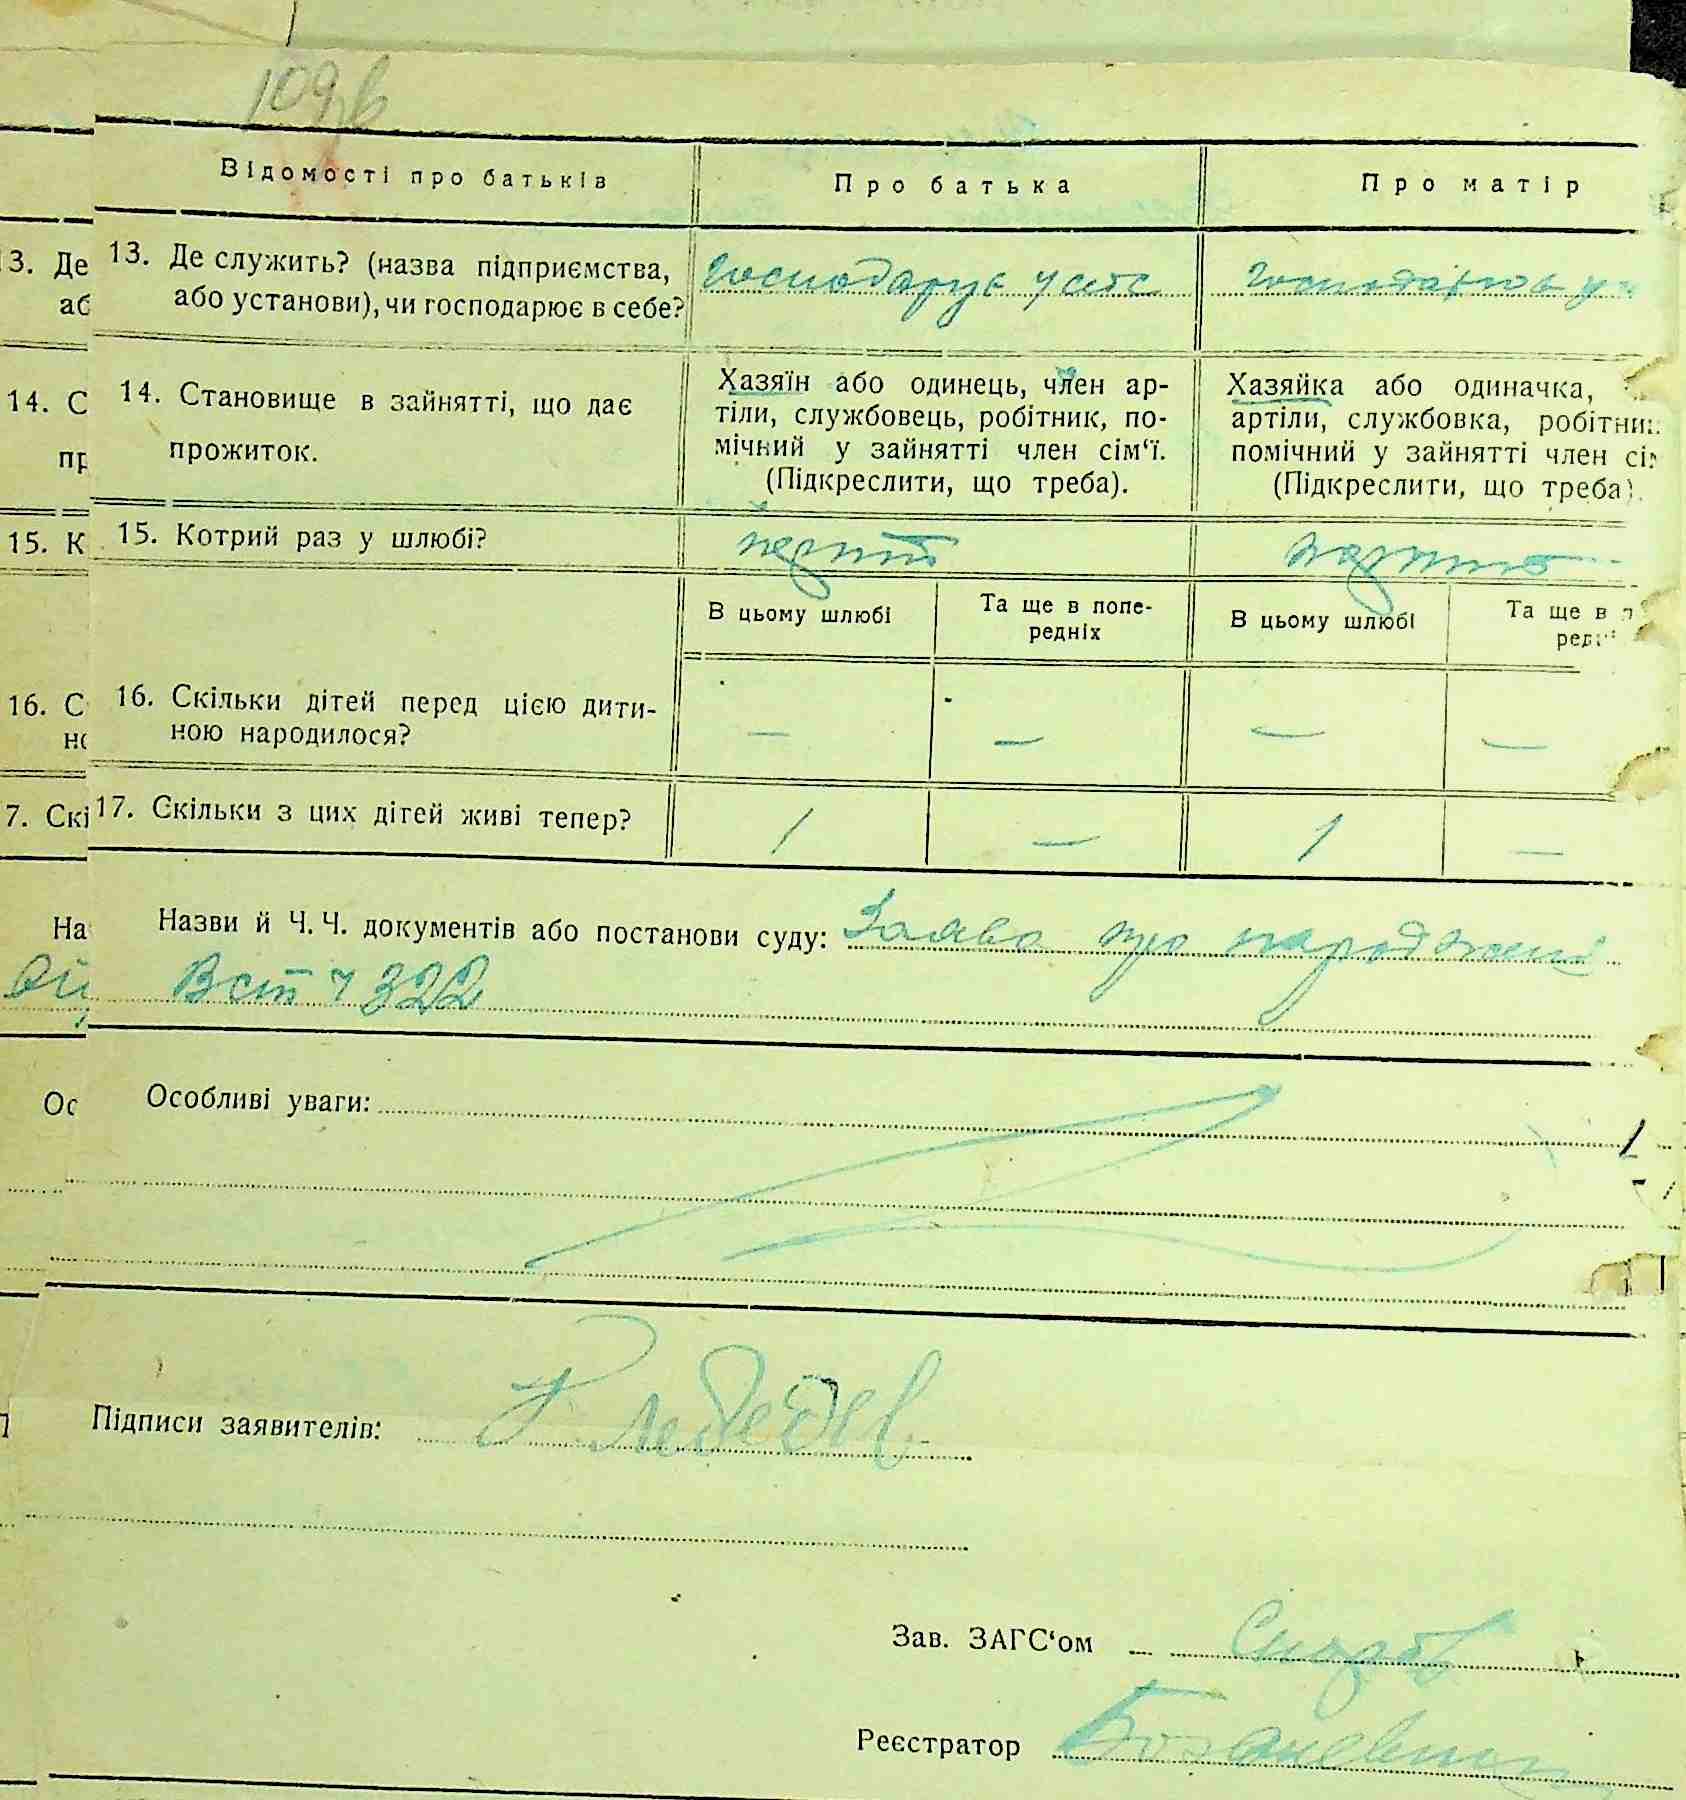 109в
Відомості про батьків
Про батька
Про матір
3. Де
аб
13. Де служить? (назва підприємства,
або установи), чи господарює в себе?
Господарує у себе
14. С
пр
14. Становище в зайнятті, що дає
прожиток.
Хазяїн або одинець, член ар-
тіли, службовець, робітник, по-
мічний у зайнятті член сім‘ї.
(Підкреслити, що треба).
Хазяйка або одиначка,
артіли, службовка, робітни
помічний у зайнятті член сі
(Підкреслити, що треба).
15. К
15. Котрий раз у шлюбі?
В цьому шлюбі
Та ще в попе-
редніх
В цьому шлюбі
Та ще в п
ред
16. С
но
16. Скільки дітей перед цією дити-
ною народилося?
—
—
—
—
7. Скі
17. Скільки з цих дітей живі тепер?
1
—
1
—
На
Назви й Ч. Ч. документів або постанови суду: Заява про народжені
Вст ч 322
Ос
Особливі уваги:
Підписи заявителів: Лебедев
Зав. ЗАГС‘ом
Реєстратор